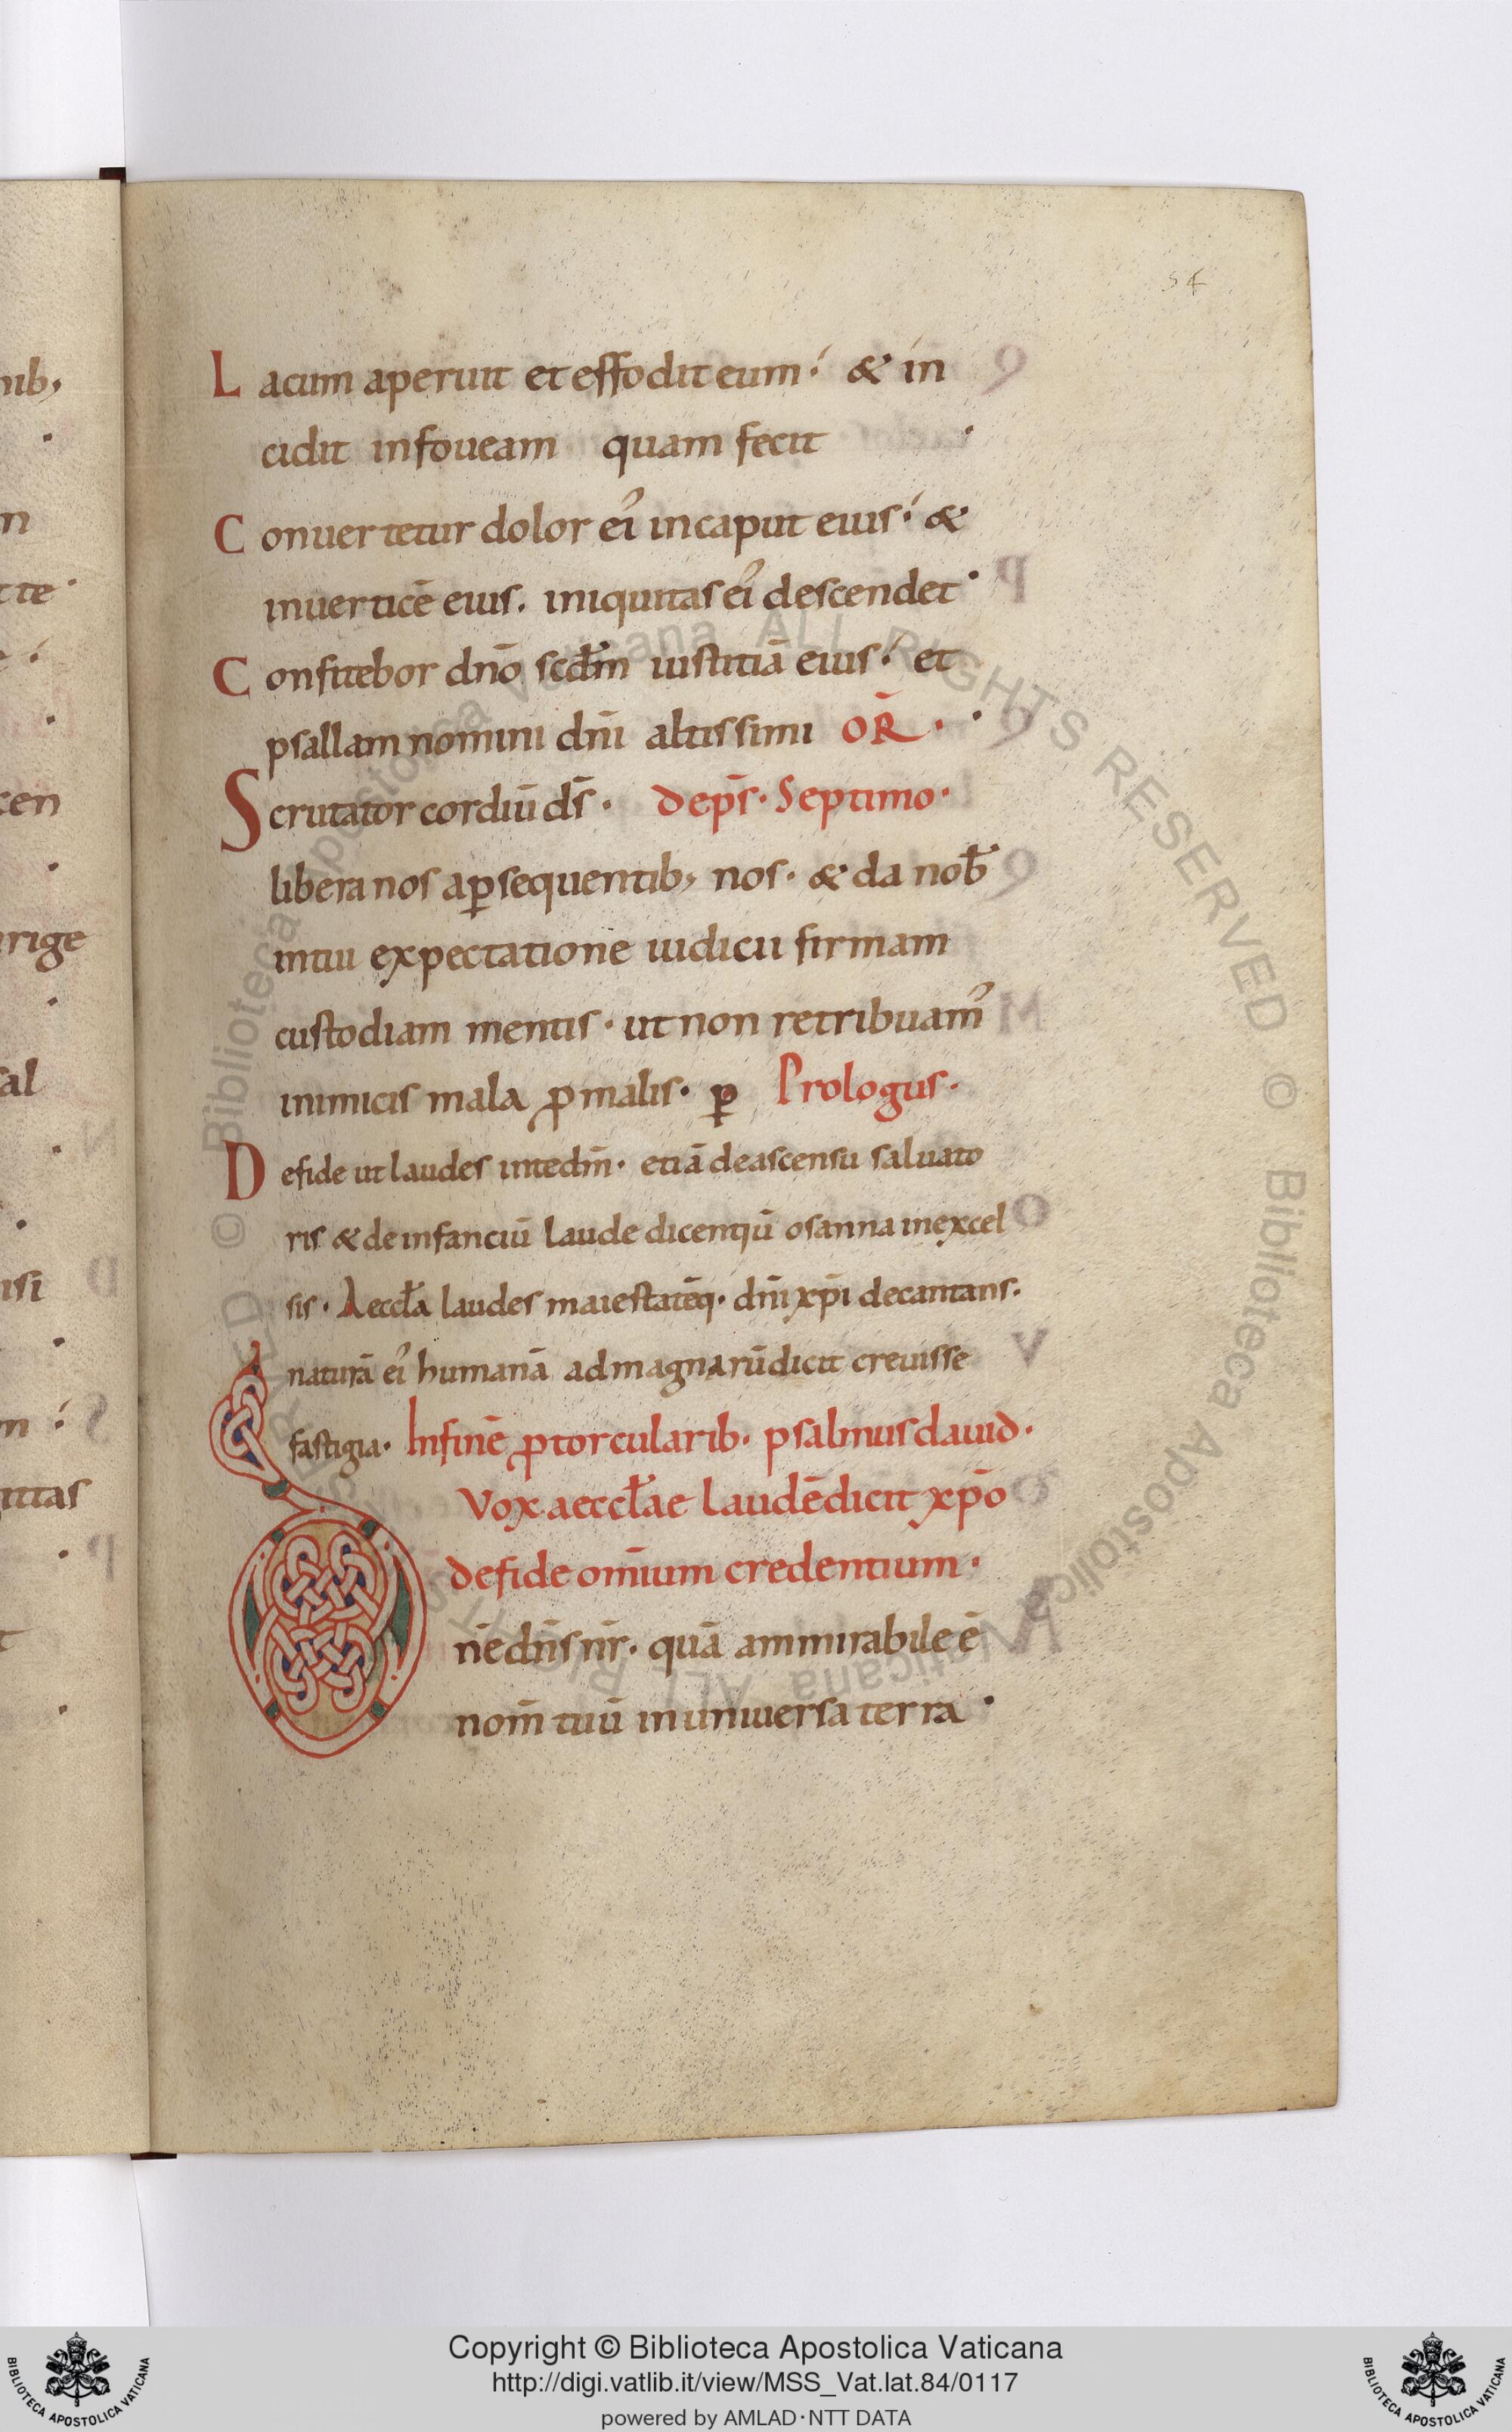 54
Lacum aperuit et effodit eum· & in
cidit in foueam quam fecit ·
Conuertetur dolor ei᾽ in caput eius· &
in uerticē eius. iniquitas ei᾽ descendet·
Confitebor dnō scdm̄ iustitiā eius· et
psallam nomini dnī altissimi OR̄ · ·
Scrutator cordiū ds̄ · de ps̄· Septimo·
libera nos a ꝑsequentib; nos· & da nob̄
in tui expectatione iudicii firmam
custodiam mentis· ut non retribuam᾽
inimicis mala ꝓ malis· ꝑ Prologus·
De fide ut laudes intedm̄· etiā de ascensu saluato
ris & de infanciū laude dicentiū osanna in excel
sis· Aeccl̄a laudes maiestatēq· dnī xp̄i decantans·
naturā ei᾽ humanā ad magnarū dicit creuisse
fastigia· In finē ꝓ torcularib· psalmus dauid·
Vox aeccl̄ae laudē dicit xp̄o
de fide om̄ium credentium·
D nē dn̄s nr̄· quā ammirabile ē
nom̄ tuū in uniuersa terra·
Copyright © Biblioteca Apostolica Vaticana
http://digi.vatlib.it/view/MSS_Vat.lat.84/0117
powered by AMLAD·NTT DATA
BIBLIOTECA APOSTOLICA VATICANA
BIBLIOTECA APOSTOLICA VATICANA
© Biblioteca Apostolica Vaticana ALL RIGHTS RESERVED © Biblioteca Apostolica Vaticana ALL RIGHTS RESERVED